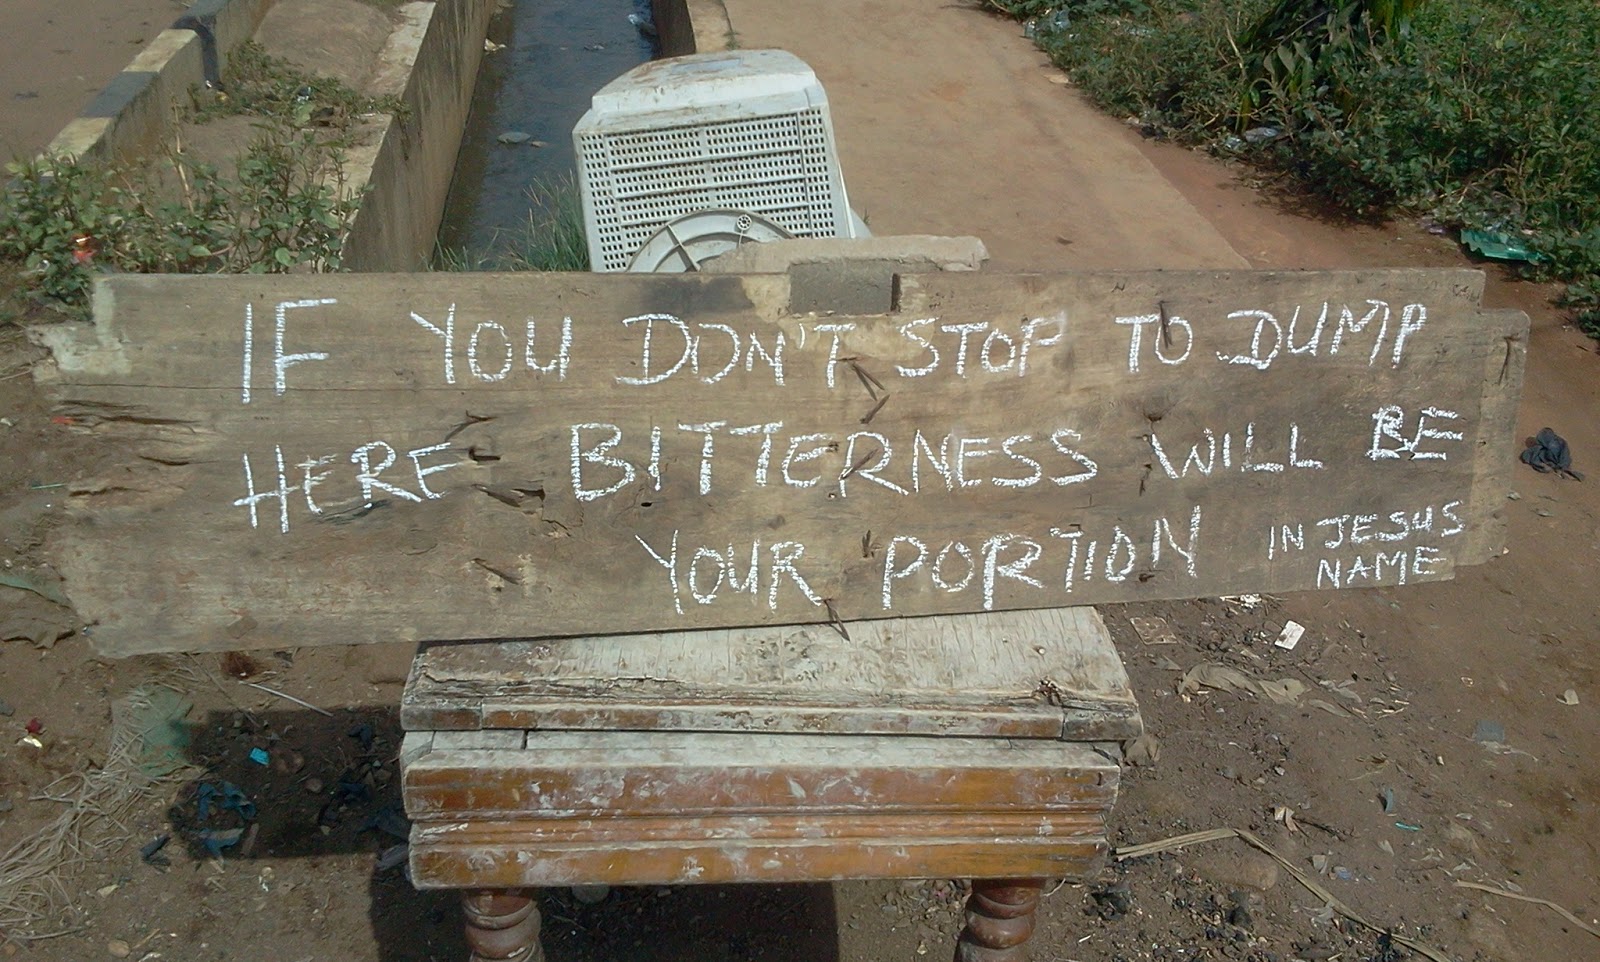 IF YOU DON'T STOP TO DUMP
HERE BITTERNESS WILL BE
YOUR PORTION IN JESUS
NAME